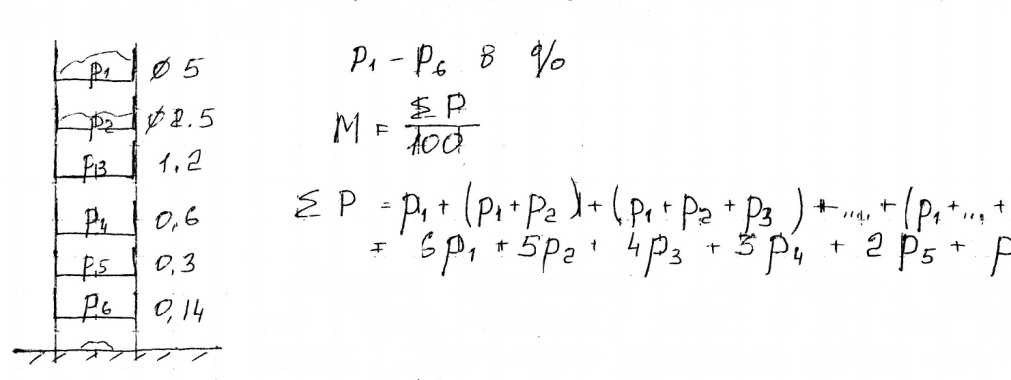 p1 ⌀ 5
p2 ⌀ 2.5
p3 1.2
p4 0,6
p5 0,3
p6 0,14
p1 – p6 в %
M = Σ P / 100
Σ P = p1 + (p1 + p2) + (p1 + p2 + p3) + .... + (p1 + ... +
= 6p1 + 5p2 + 4p3 + 3p4 + 2p5 + p